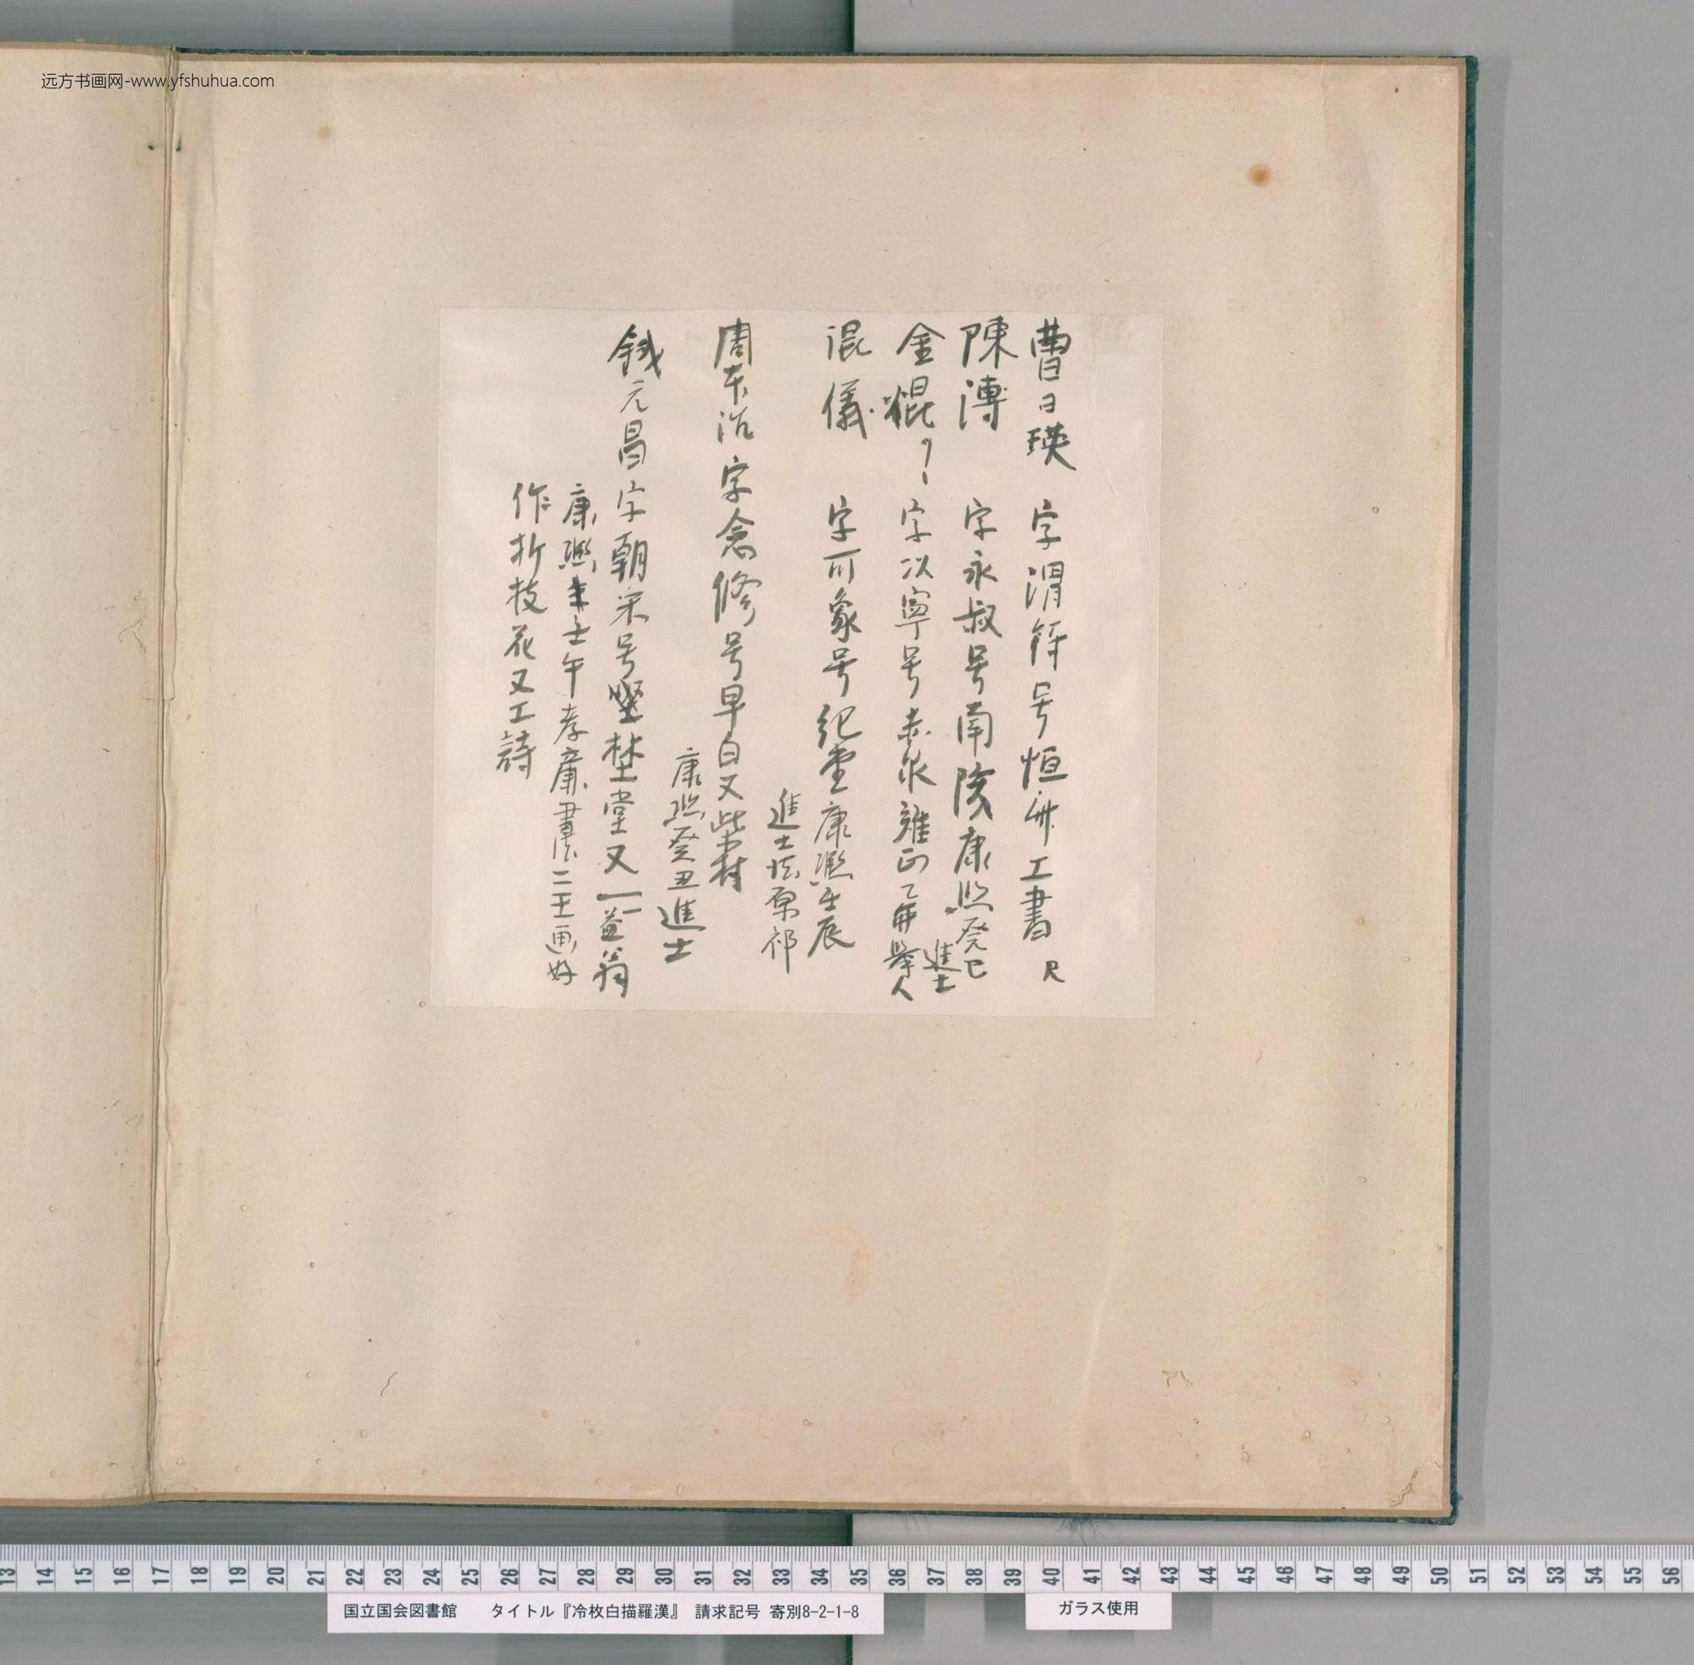 远方书画网-www.yfshuhua.com
曹日瑛 字渭符号恒斎工書 尺
陳溥 字永叔号南陔康熙癸巳
進士
金焜？字以寧号赤泉雍正乙卯舉人
混儀 字可象号紀堂康熙壬辰
進士 祁
周 治字念修号早白又柴村
康熙癸丑進士
錢元昌字朝采号埜堂又一益翁
康熙壬午孝廉書法二王画好
作折枝花又工詩
13 14 15 16 17 18 19 20 21 22 23 24 25 26 27 28 29 30 31 32 33 34 35 36 37 38 39 40 41 42 43 44 45 46 47 48 49 50 51 52 53 54 55 56
国立国会図書館 タイトル『冷枚白描羅漢』 請求記号 寄別8-2-1-8
ガラス使用